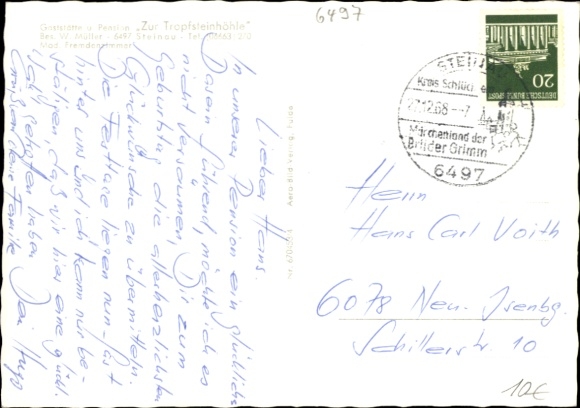 6497
Gaststätte u. Pension "Zur Tropfsteinhöhle"
Bes. W. Müller - 6497 Steinau - Tel. 06663/210
Mod. Fremdenzimmer
Lieber Hans.
In unserer Pension ein glückliches
Dasein führend, möchte ich es
nicht versäumen, Dir zum
Geburtstag die allerherzlichsten
Glückwünsche zu übermitteln.
Die Festtage liegen nun fast
hinter uns und ich kann nur be-
stätigen, daß wir hier eine glückl.
Wahl getroffen haben
Grüße an Deine Familie Dein Hugo
Aero-Bild-Verlag, Fulda
STEINAU
Kreis Schlüchtern
27.12.68 - - 7
Märchenland der
Brüder Grimm
6497
DEUTSCHE BUNDESPOST
20
Herrn
Hans Carl Voith
6078 Neu-Isenbg.
Schillerstr. 10
10€